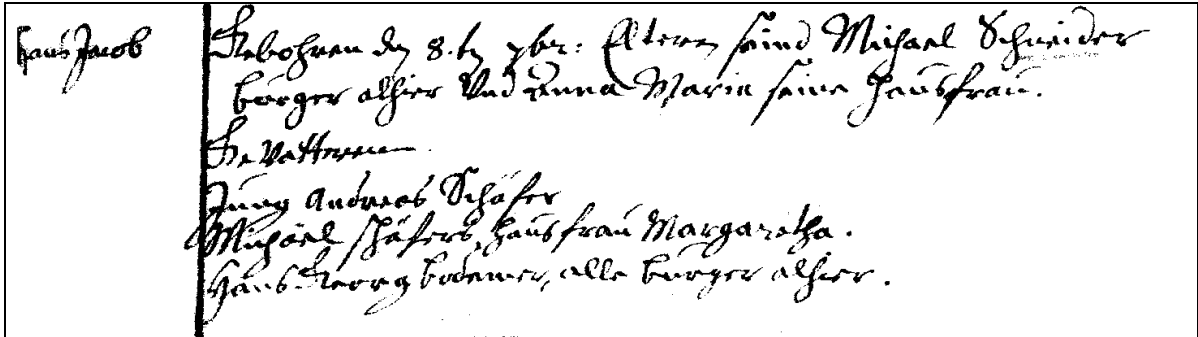 Hans Jacob
Gebohren den 8.t 7br: Elteren seind Michael Schneider
burger alhier Und Anna Maria seine haußfrau.
GeVatteren
Jung Andreas Schäfer
Michael schäfers haußfrau Margaretha.
Hans Georg bodemer, alle burger alhier.